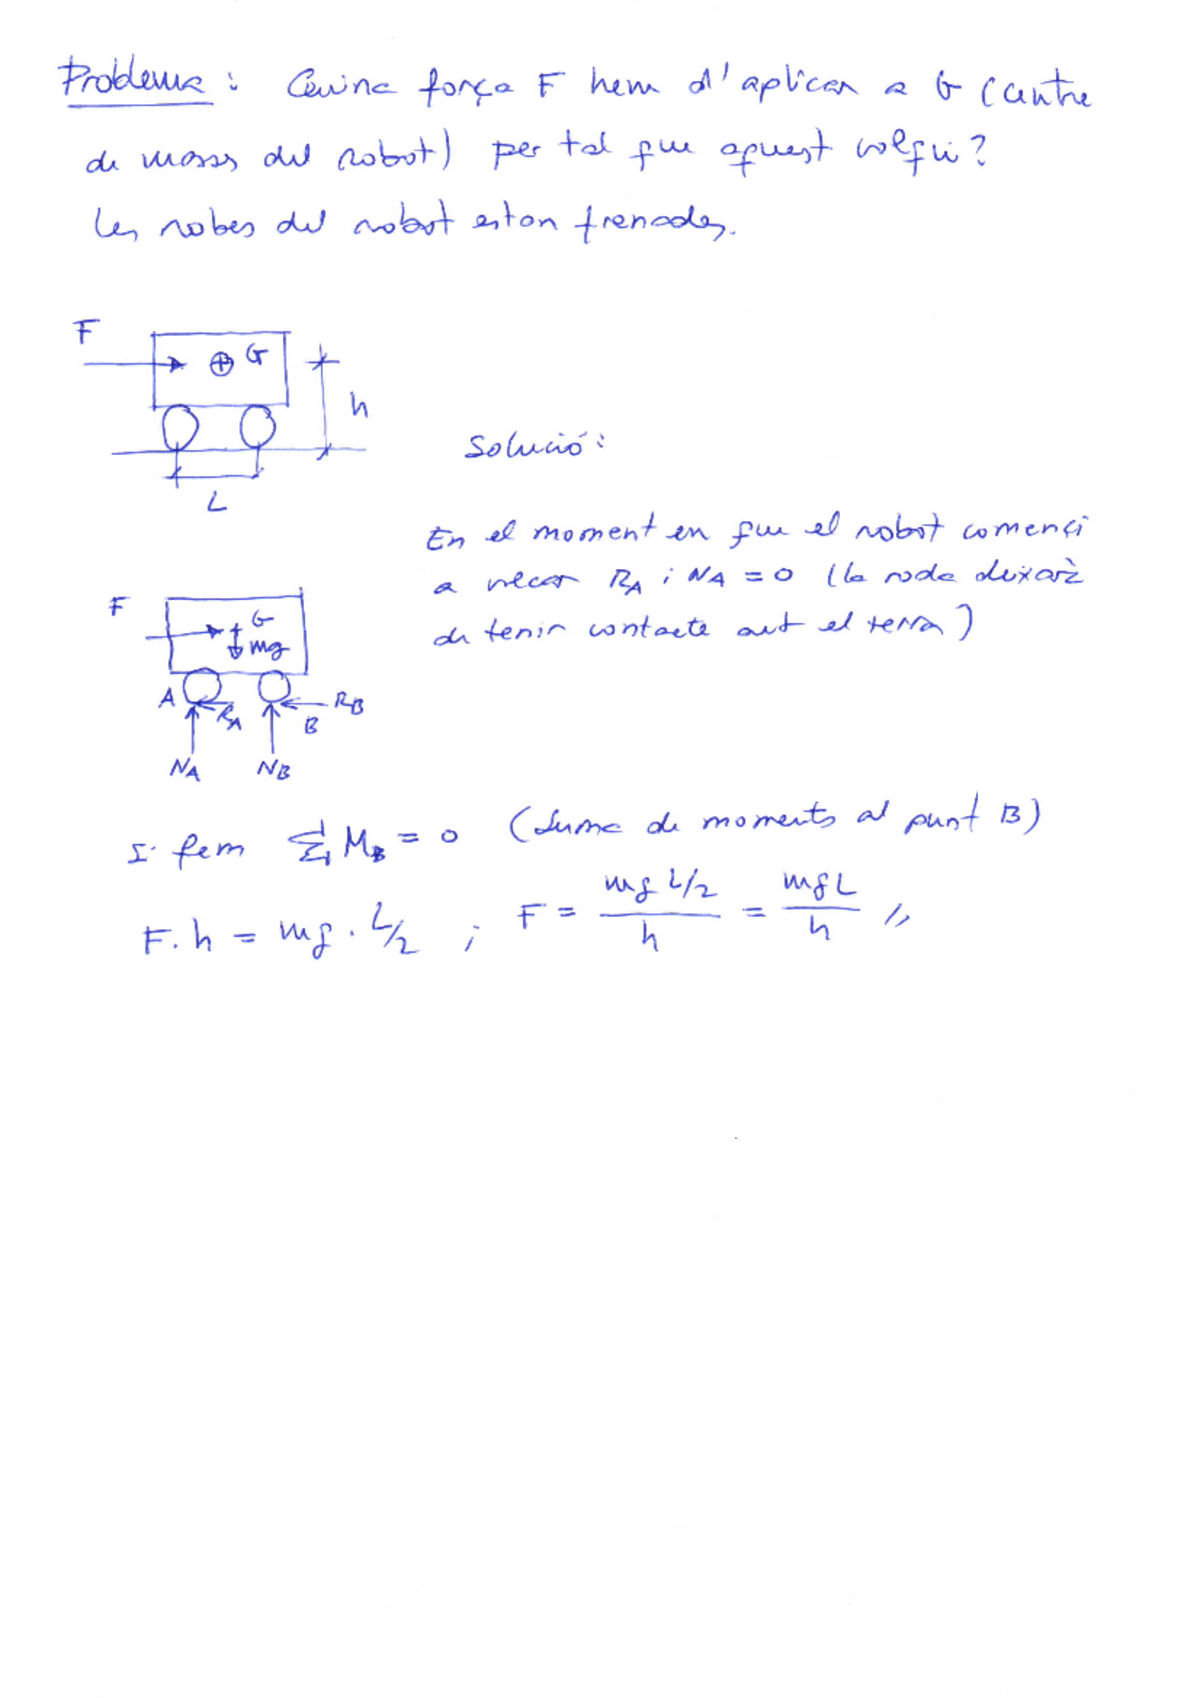 Problema : Quina força F hem d'aplicar a G (centre
de masses del robot) per tal que aquest volqui?
Les rodes del robot estan frenades.
F
G
h
L
Solució:
En el moment en que el robot comenci
a volcar RA i NA = 0 (la roda deixarà
de tenir contacte amb el terra)
F
G
mg
A
RA
RB
B
NA NB
I fem Σ MB = 0 (Suma de moments al punt B)
F. h = mg . L/2 ; F = mg L/2 / h = mgL / h //